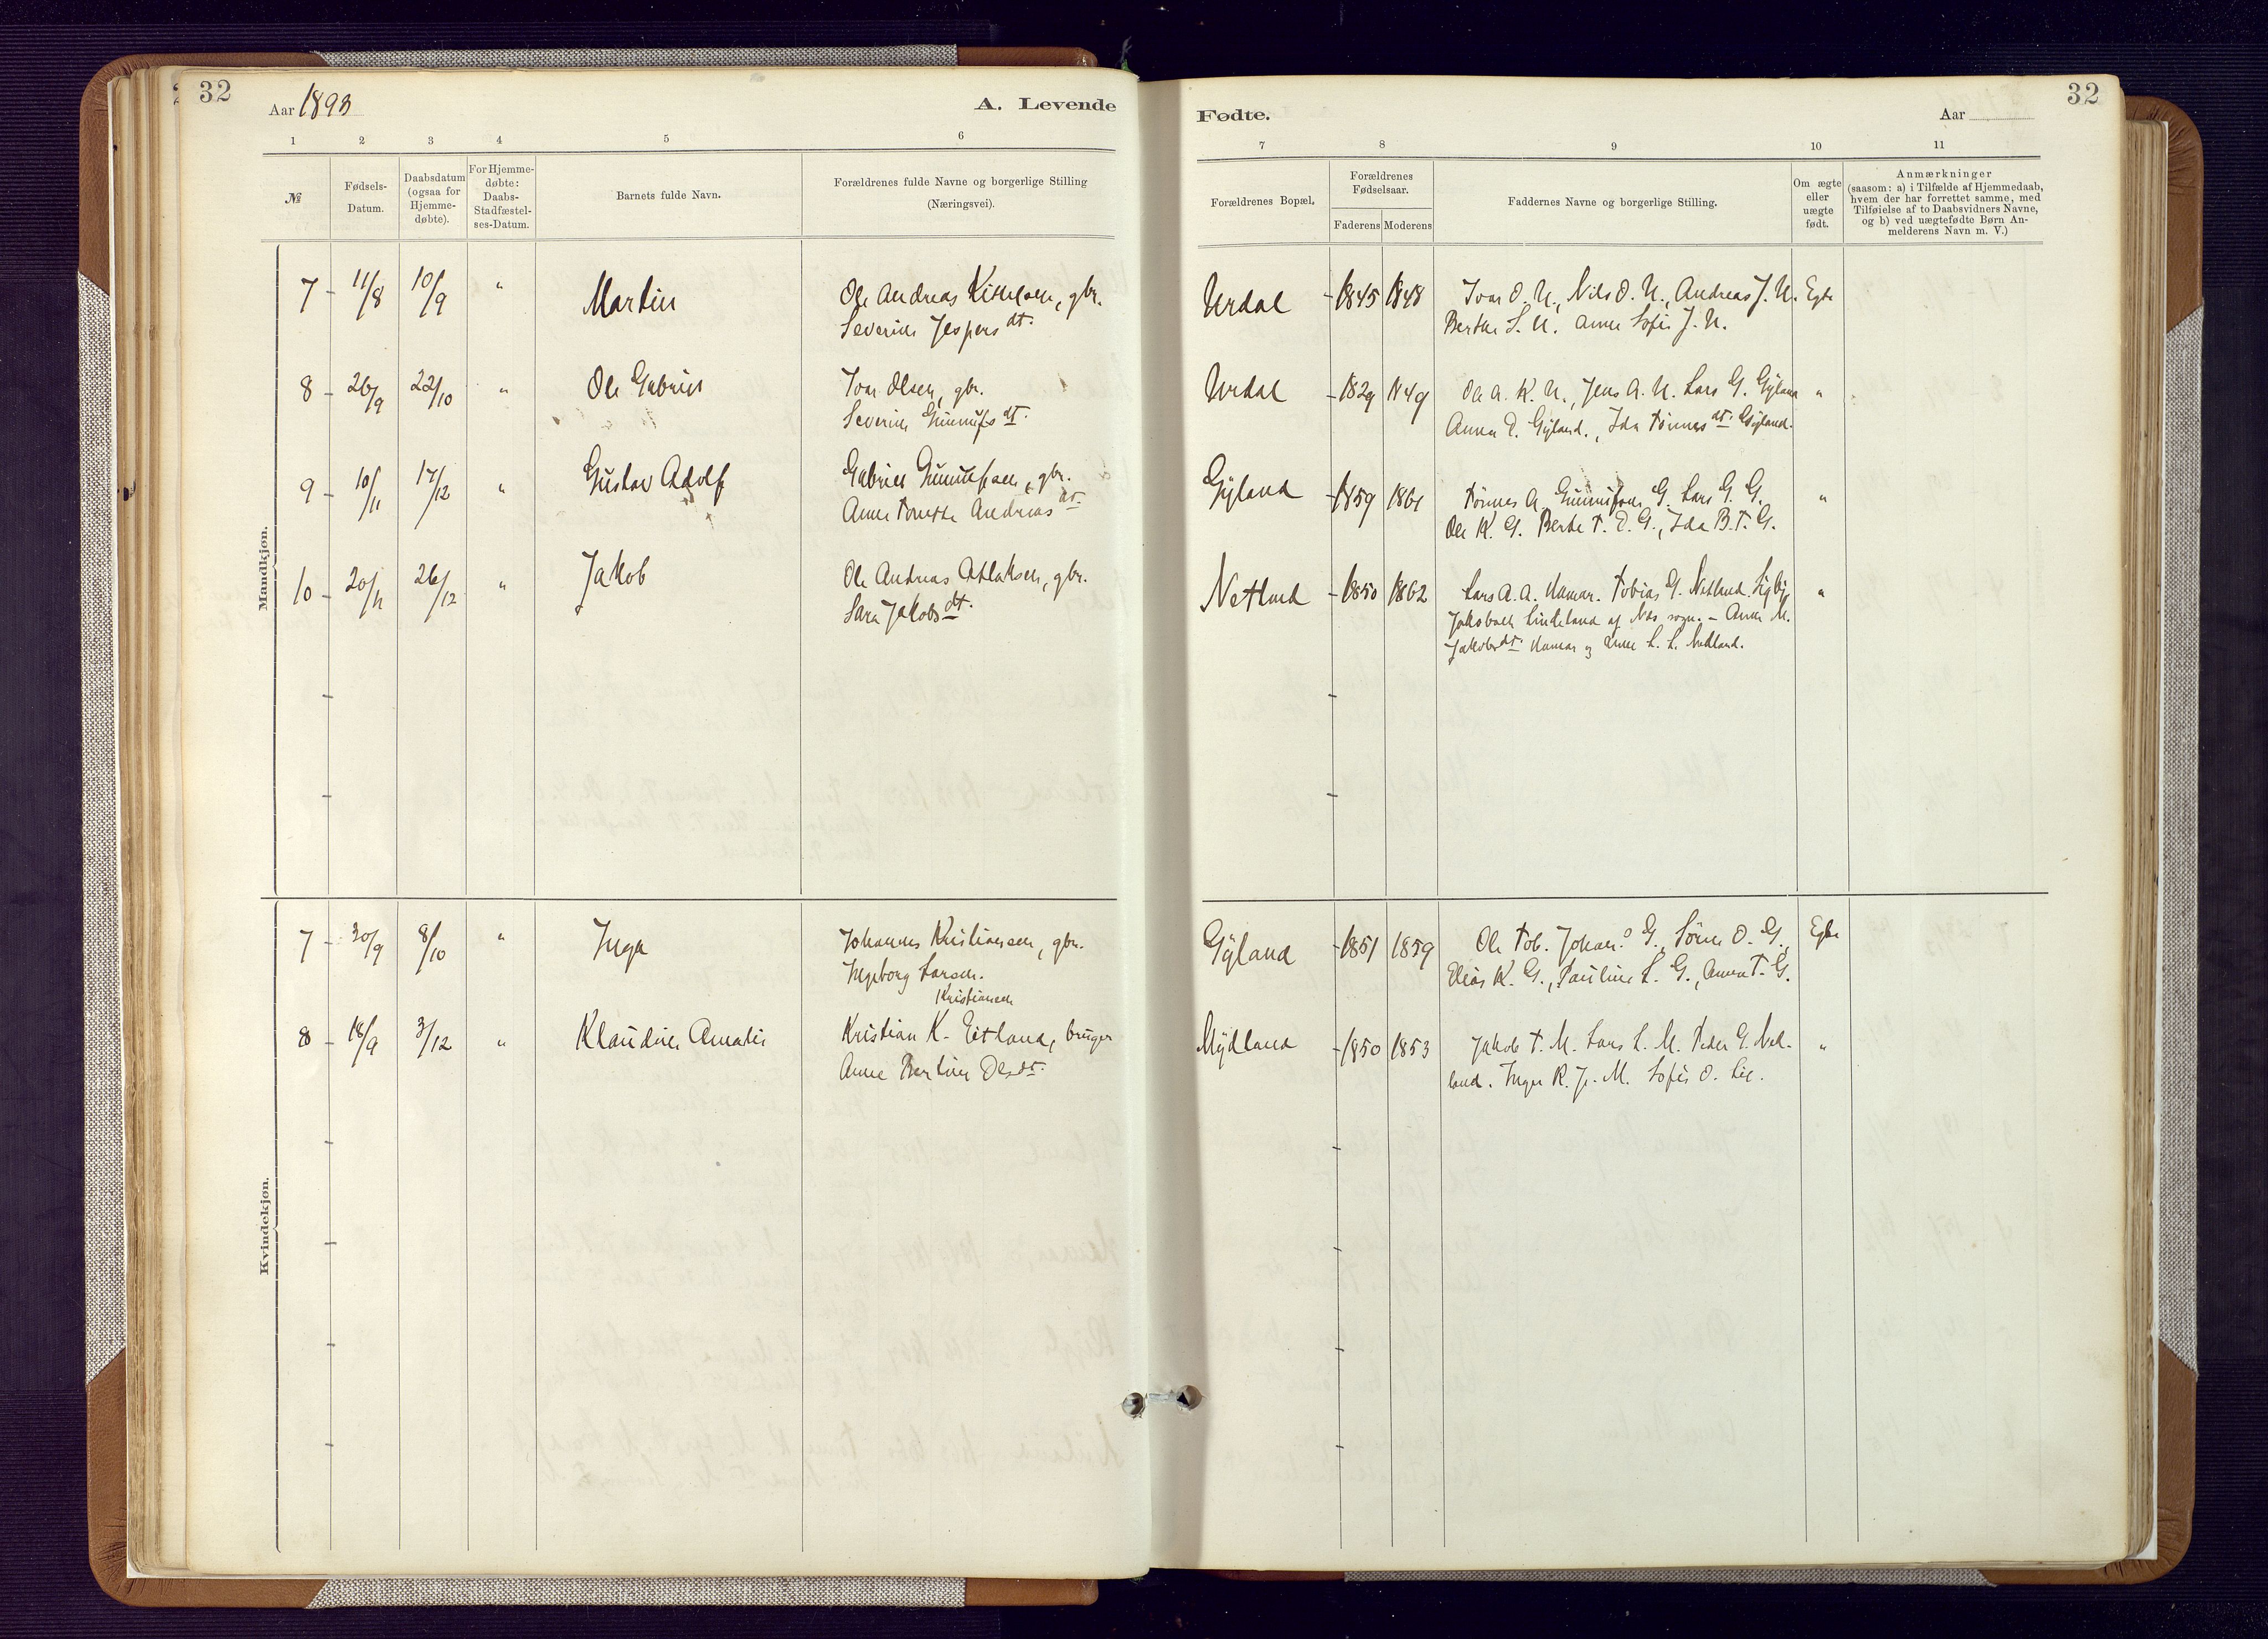 32
Aar 1893
A. Levende
Fødte.
Aar
32
1 2 3 4 5 6
7 8 9 10 11
№
Fødsels-
Datum.
Daabsdatum
(ogsaa for
Hjemme-
døbte).
For Hjemme-
døbte:
Daabs-
Stadfæstel-
ses-Datum.
Barnets fulde Navn.
Forældrenes fulde Navne og borgerlige Stilling
(Næringsvei).
Forældrenes Bopæl.
Forældrenes
Fødselsaar.
Faderens Moderens
Faddernes Navne og borgerlige Stilling.
Om ægte
eller
uægte
født.
Anmærkninger
(saasom: a) i Tilfælde af Hjemmedaab,
hvem der har forrettet samme, med
Tilføielse af to Daabsvidners Navne,
og b) ved uægtefødte Børn An-
melderens Navn m. V.)
Mandkjøn.
7 11/8 10/9 " Martin Ole Andreas Kittelsen, gbr. Urdal 1845 1848 Ivar O. U., Nils O. U., Andreas J. U. Egte
Severine Jespersdt. Berthe S. U. Anne Sofie J. U.
8 26/9 22/10 " Ole Gabriel Ivar Olsen, gbr. Urdal 1829 1849 Ole A. K. U., Jens A. U. Lars G. Gyland "
Severine Gunnufsdt. Anna E. Gyland., Ida Tønnesdt. Gyland.
9 10/11 17/12 " Gustav Adolf Gabriel Gunnufsen, gbr. Gyland 1859 1861 Tønnes A. Gunnufsen G. Lars G. G. "
Anne Tonette Andreasdt Ole K. G. Berte T. E. G., Ida B. T. G.
10 20/11 26/12 " Jakob Ole Andreas Atlaksen, gbr. Netland 1850 1862 Lars A. A. Hamar. Tobias G. Netland. "
Sara Jakobsdt. Jakobsen Lindeland af Nes sogn. - Anne M.
Jakobsdt. Hamar og Anne L. L. Netland.
Kvindekjøn.
7 30/9 8/10 " Inga Johannes Kristiansen, gbr. Gyland 1851 1859 Ole Tob. Johan. G., Sören O. G., Egte
Ingeborg Larsen. Elias K. G., Pauline L. G., Anna T. G.
Kristiansen
8 18/9 3/12 " Klaudine Amalie Kristian K. Eitland, bruger Mydland 1850 1853 Jakob T. M. Lars L. M. Peder G. Net- "
Anne Bertine Olsdt. land. Inger R. J. M. Sofie O. Lie.